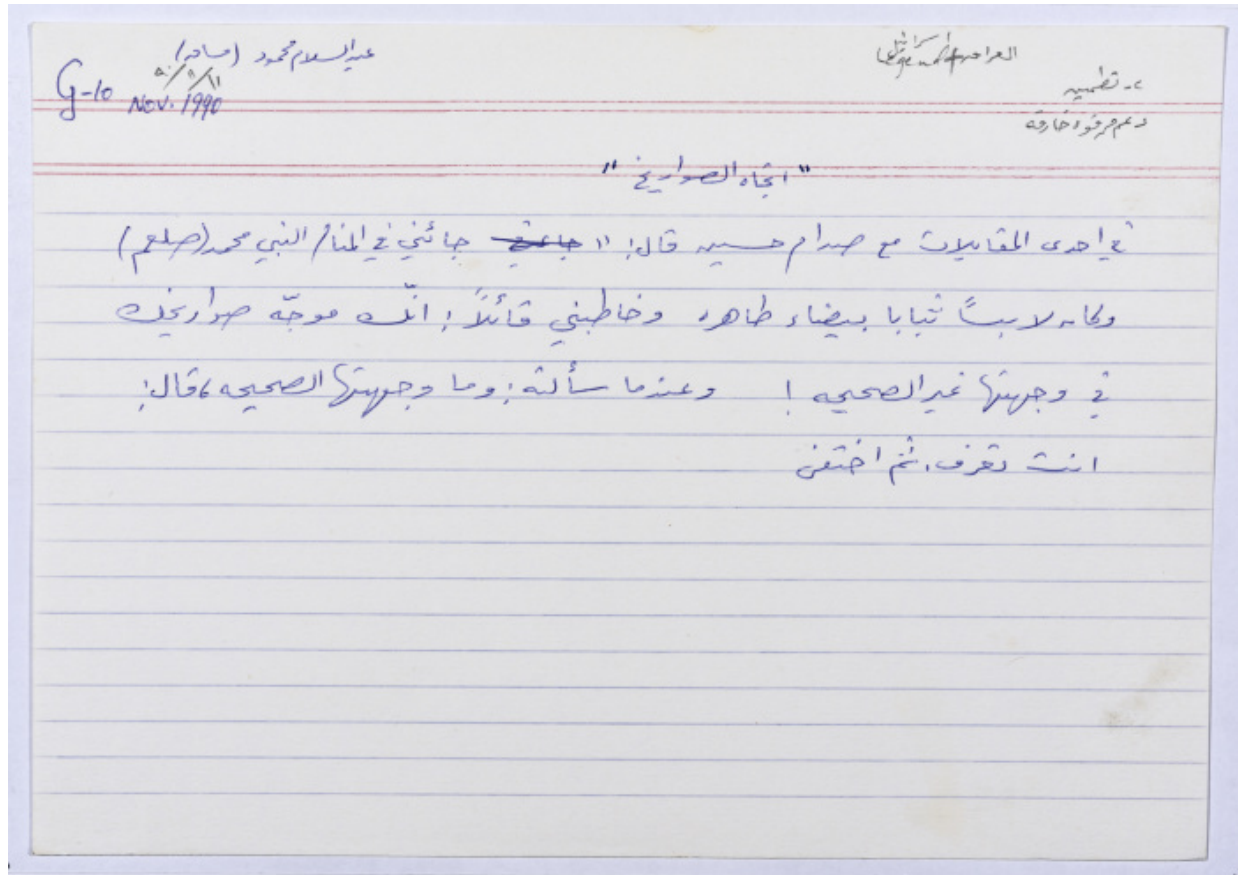 عبد السلام محمود (مسافر)
٩٠/١١/١١
G-10 Nov. 1990
٢- تطمين
دعم من قوة خارقة
"اتجاه الصواريخ"
في احدى المقابلات مع صدام حسين قال: "جائني جائني في المنام النبي محمد (صلعم)
وكان لابساً ثيابا بيضاء طاهره وخاطبني قائلاً: انّك موجّه صواريخك
في وجهتها غير الصحيحه! وعندما سألته: وما وجهتها الصحيحه، قال:
انت تعرف، ثم اختفى